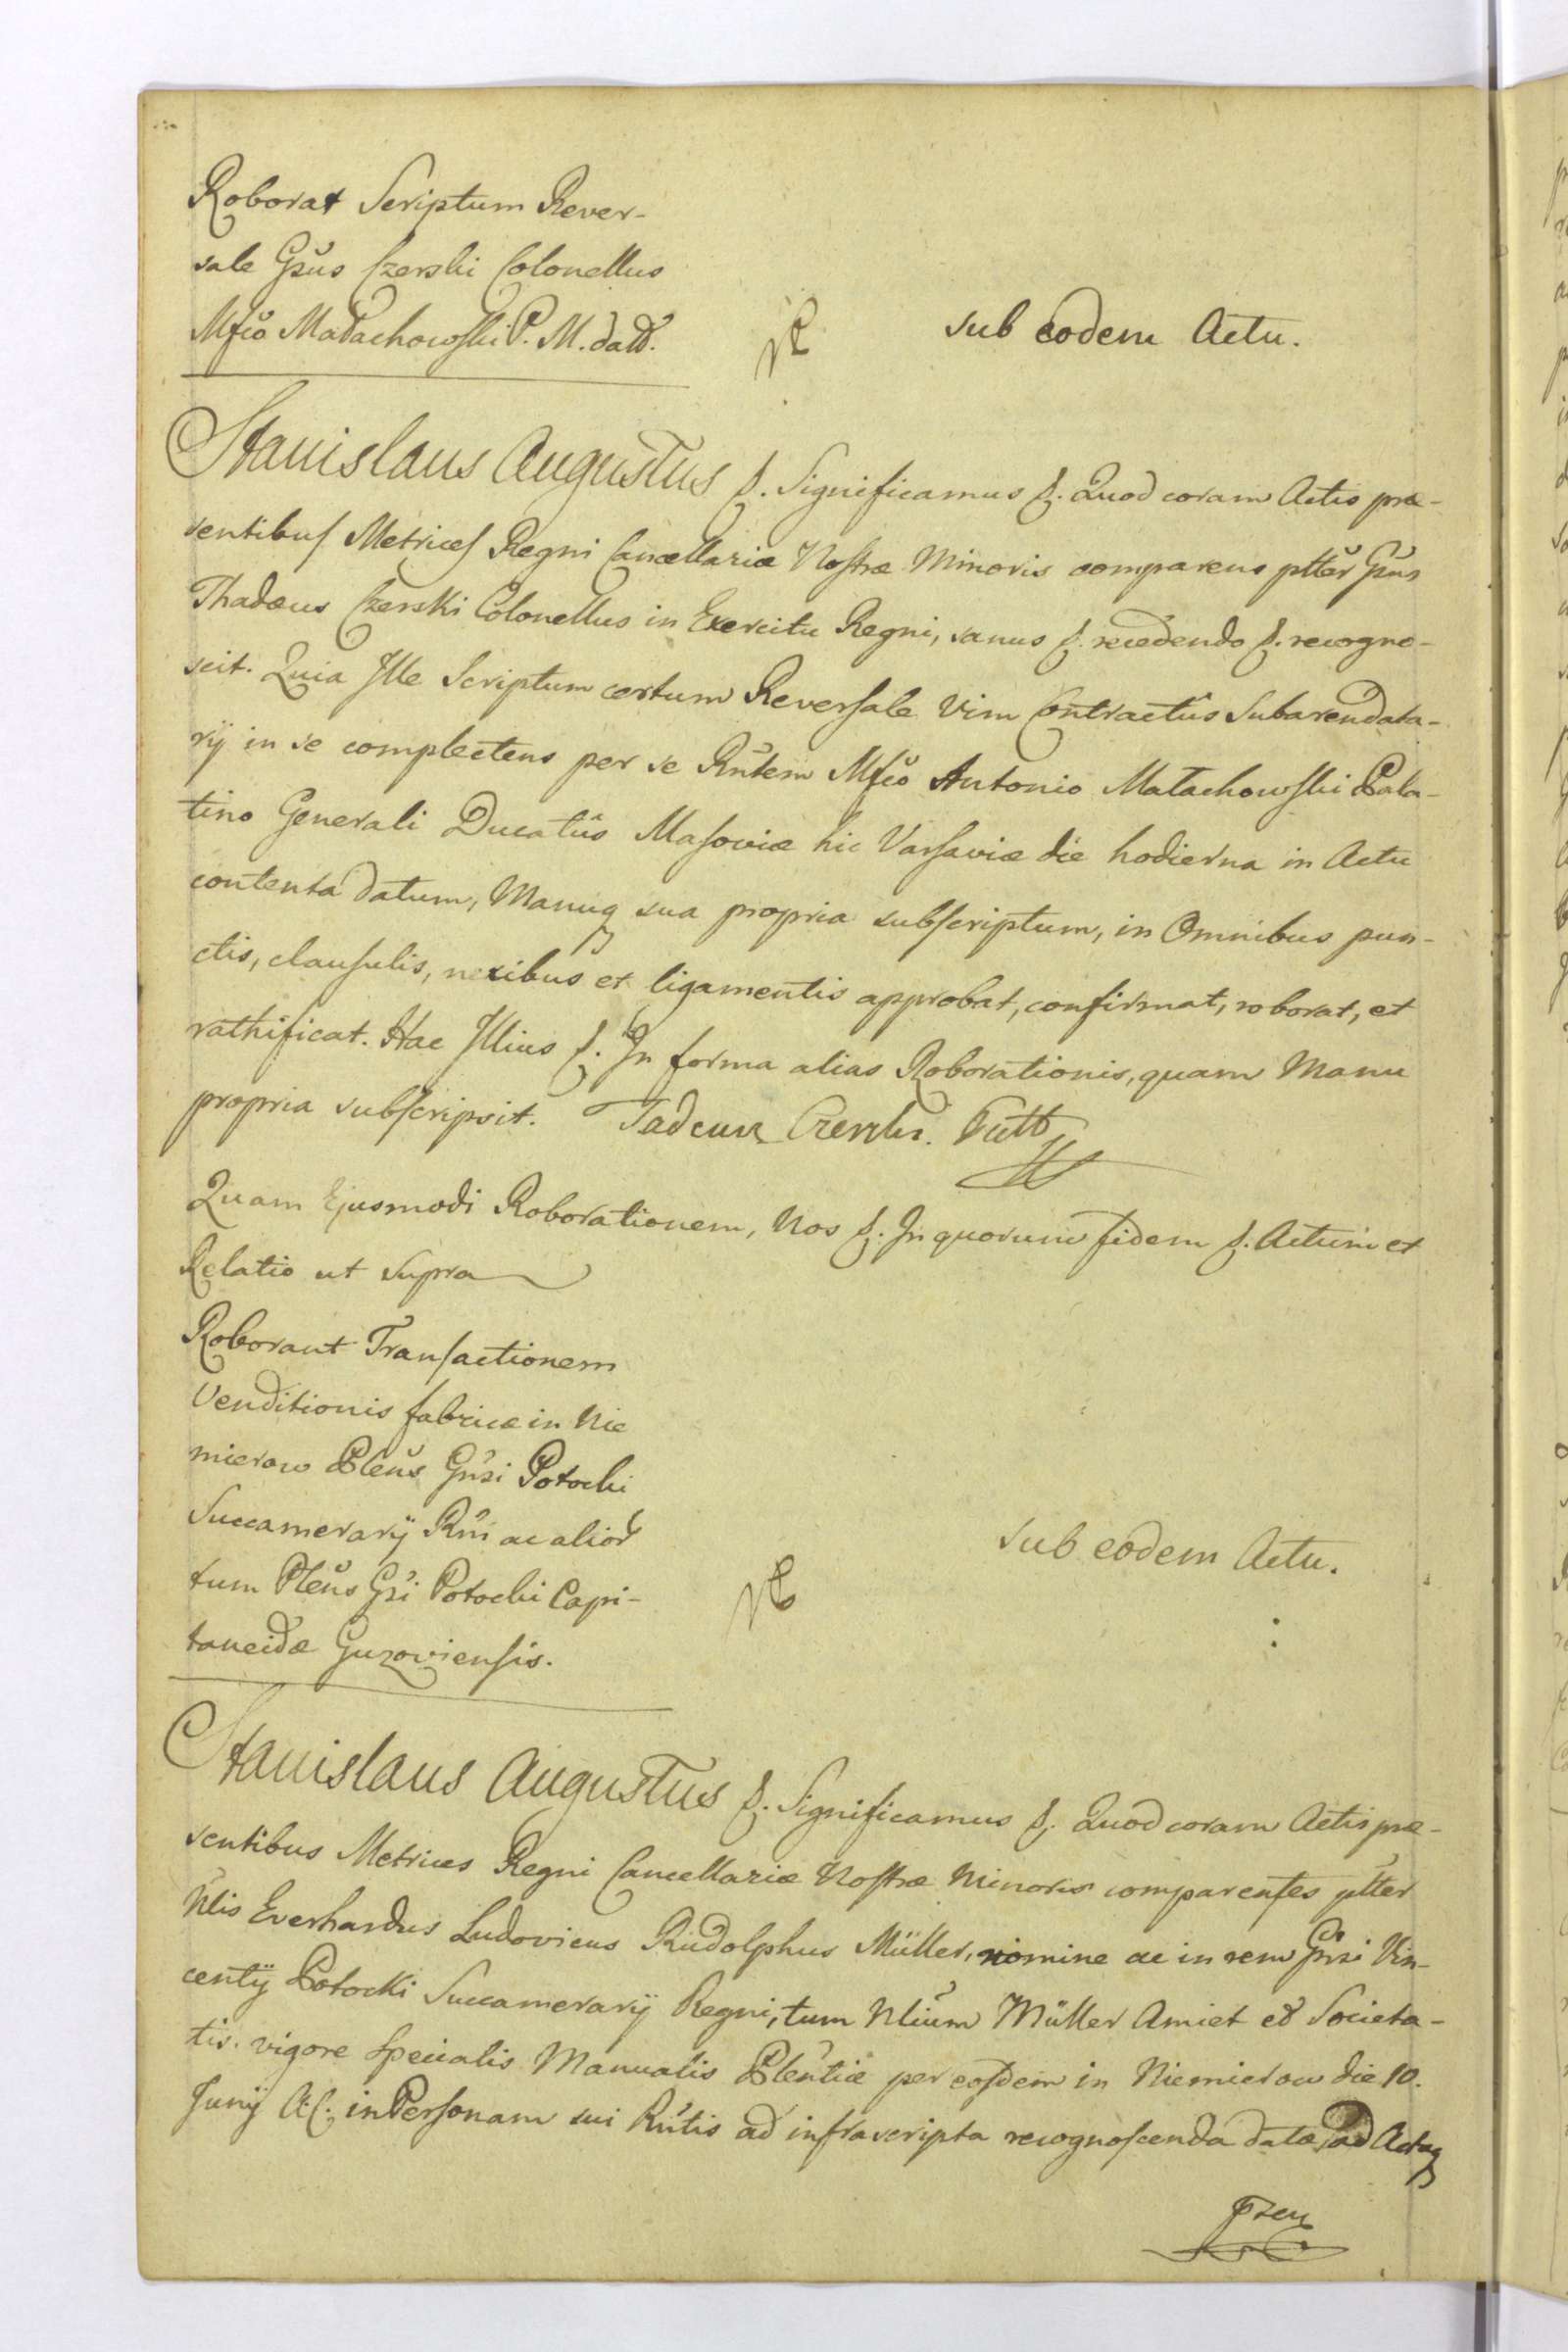 Roborat Scriptum Rever-
sale Gsus Czerski Colonellus
Mfco Małachowski P. M. datt.
sub eodem Actu.
Stanislaus Augustus &. Significamus &. Quod coram Actis præ-
sentibus Metrices Regni Cancellariæ Nostræ Minoris comparens ptter Gsus
Thadæus Czerski Colonellus in Exercitu Regni, sanus &. recedendo &. recogno-
scit. Quia Ille Scriptum certum Reversale Vim Contractûs Subarendata-
rij in se complectens per se Rntem Mfco Antonio Małachowski Pala-
tino Generali Ducatûs Masoviæ hic Varsaviæ die hodierna in Actu
contenta datum, Manuq sua propria subscriptum, in Omnibus pun-
ctis, clausulis, nexibus et ligamentis approbat, confirmat, roborat, et
rathificat. Hac Illius &. In forma alias Roborationis, quam Manu
propria subscripsit. Tadeusz Czerski.
Quam Ejusmodi Roborationem, Nos &. In quorum fidem &. Actum et
Relatio ut supra
Roborant Transactionem
Venditionis fabricæ in Nie
mierow Plenus Gnsi Potocki
Succamerarij Rni ac alior
tum Plenus Gsi Potocki Capi-
taneidæ Guzoviensis.
sub eodem Actu.
Stanislaus Augustus &. Significamus &. Quod coram Actis præ-
sentibus Metrices Regni Cancellariæ Nostræ Minoris comparentes ptter
Nlis Everhardus Ludovicus Rudolphus Müller, nomine ac in rem Gnsi Vin-
centij Potocki Succamerarij Regni, tum Nlium Müller Amiet et Societa-
tis. vigore Specialis Manualis Plentiæ per eosdem in Niemierow die 10.
Junij A. C. in Personam sui Rntis ad infrascripta recognoscenda datæ, ad Actaq